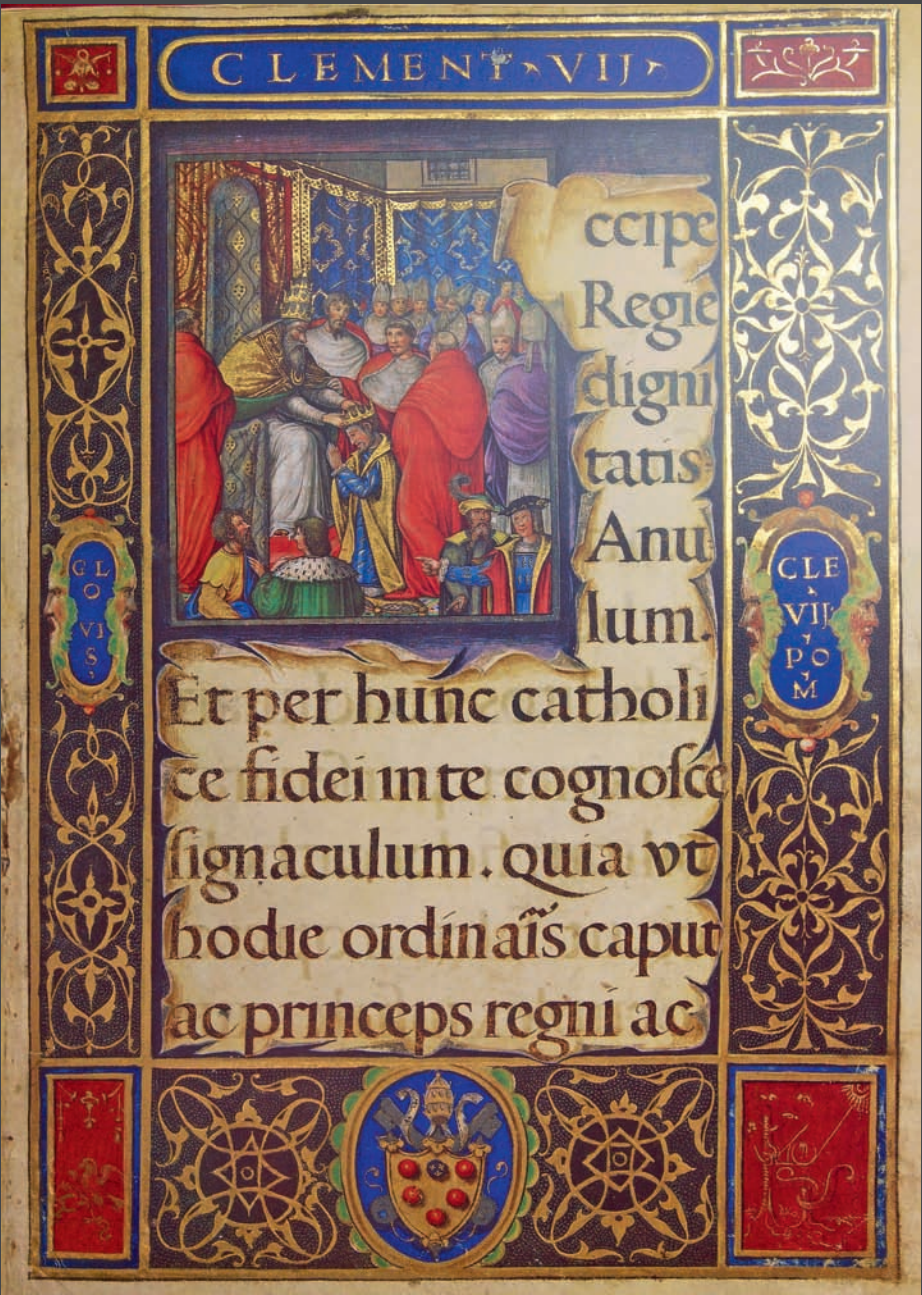 CLEMENT VIJ
ccipe
Regie
digni
tatis
Anu
lum.
Et per hunc catholi
ce fidei in te cognosce
signaculum. quia vt
hodie ordinaĩs caput
ac princeps regni ac
CL
O
VI
S
CLE
VIJ
PO
M